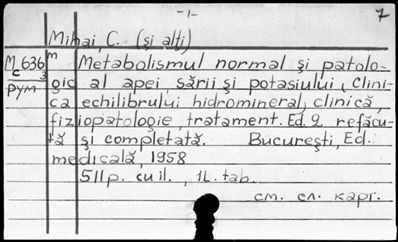 -1-
7
Mihai, C. (și alți)
M 636 m Metabolismul normal și patolo-
c 3 gic al apei, sării și potasiului, Clini-
рум ca echilibrului hidromineral, clinică,
fiziopatologie, tratament. Ed. 2. refăcu-
tă și completată. București, Ed.
medicală, 1958
511 p. cu il., 1L. tab.
см. сл. карт.